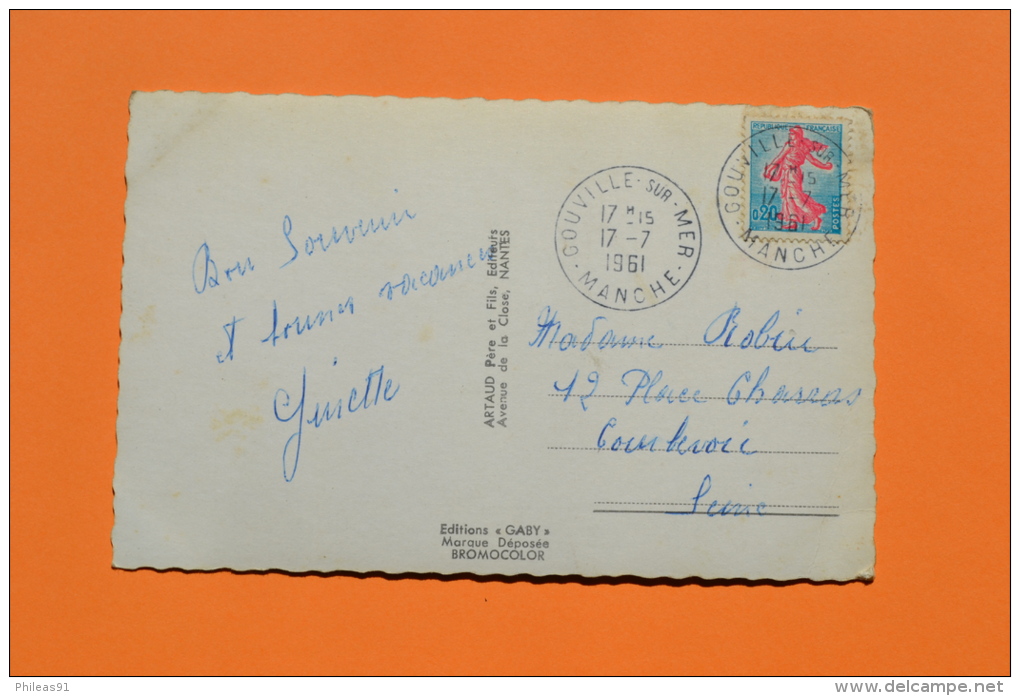 Bon Souvenir
et bonnes vacances
Ginette
ARTAUD Père et Fils, Editeurs
Avenue de la Close, NANTES
Editions « GABY »
Marque Déposée
BROMOCOLOR
GOUVILLE-SUR-MER
17 H 15
17-7
1961
MANCHE
REPUBLIQUE FRANÇAISE
0,20
POSTES
GOUVILLE-SUR-MER
17 H 15
17-7
1961
MANCHE
Madame Robin
12 Place Charras
Courbevoie
Seine
Phileas91
delcampe.net